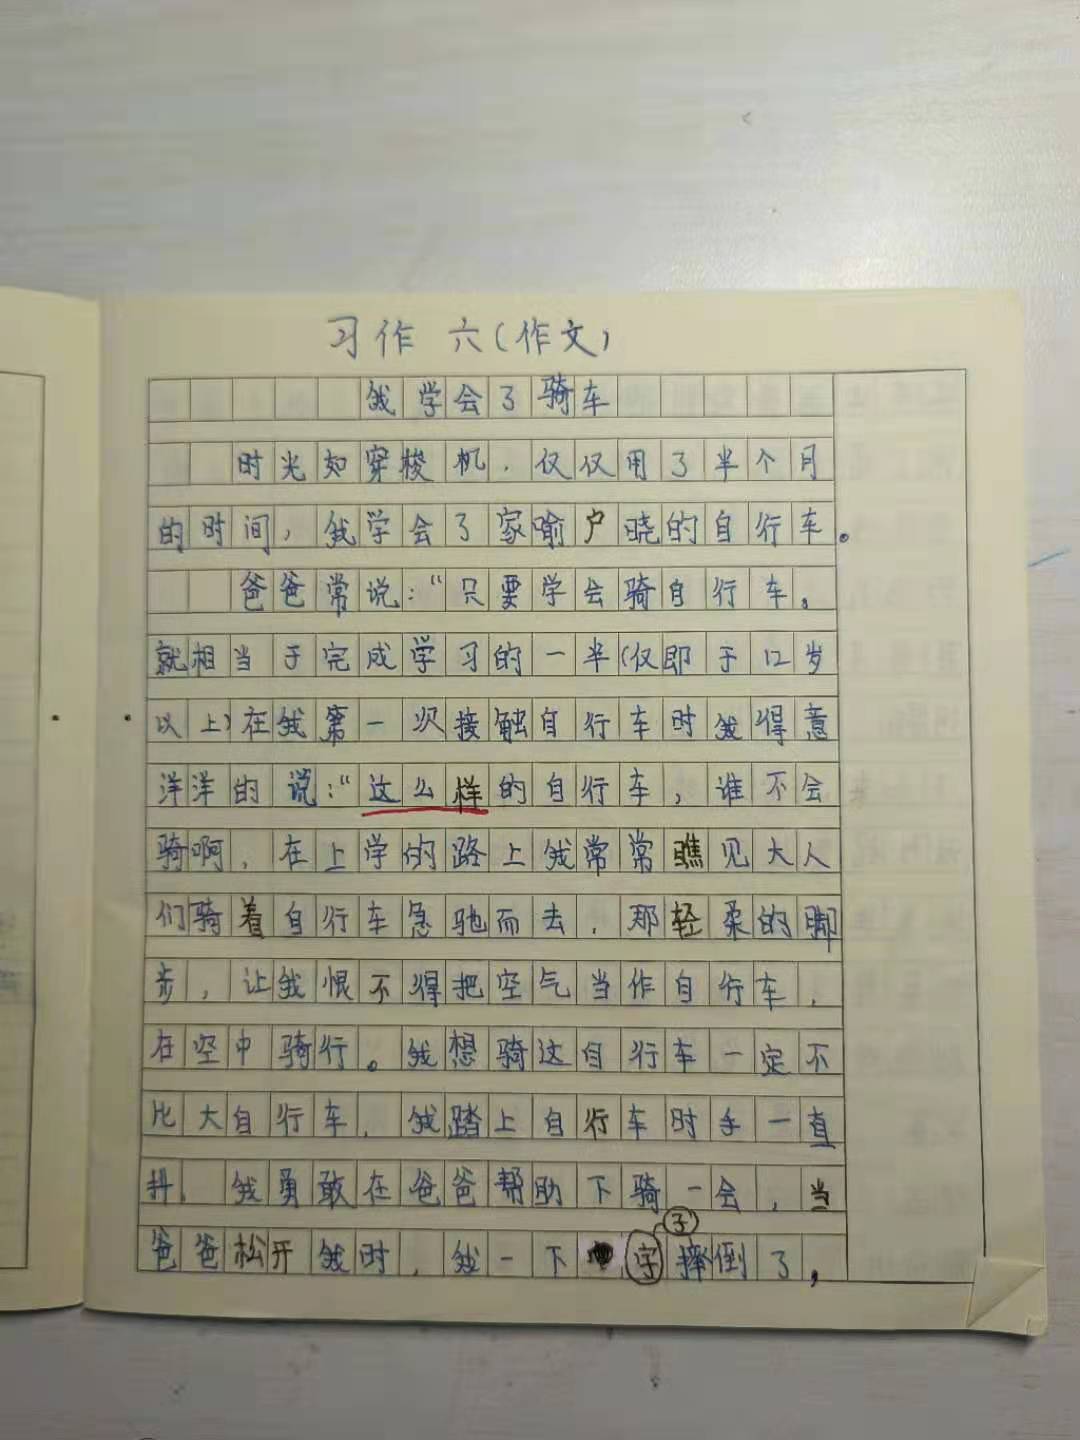 习作 六(作文)
我学会了骑车
时光如穿梭机,仅仅用了半个月
的时间,我学会了家喻户晓的自行车。
爸爸常说:“只要学会骑自行车。
就相当于完成学习的一半(仅即于12岁
以上)在我第一次接触自行车时我得意
洋洋的说:“这么样的自行车,谁不会
骑啊,在上学的路上我常常瞧见大人
们骑着自行车急驰而去,那轻柔的脚
步,让我恨不得把空气当作自行车,
在空中骑行。我想骑这自行车一定不
比大自行车,我踏上自行车时手一直
抖,我勇敢在爸爸帮助下骑一会,当
爸爸松开我时,我一下字摔倒了,
子